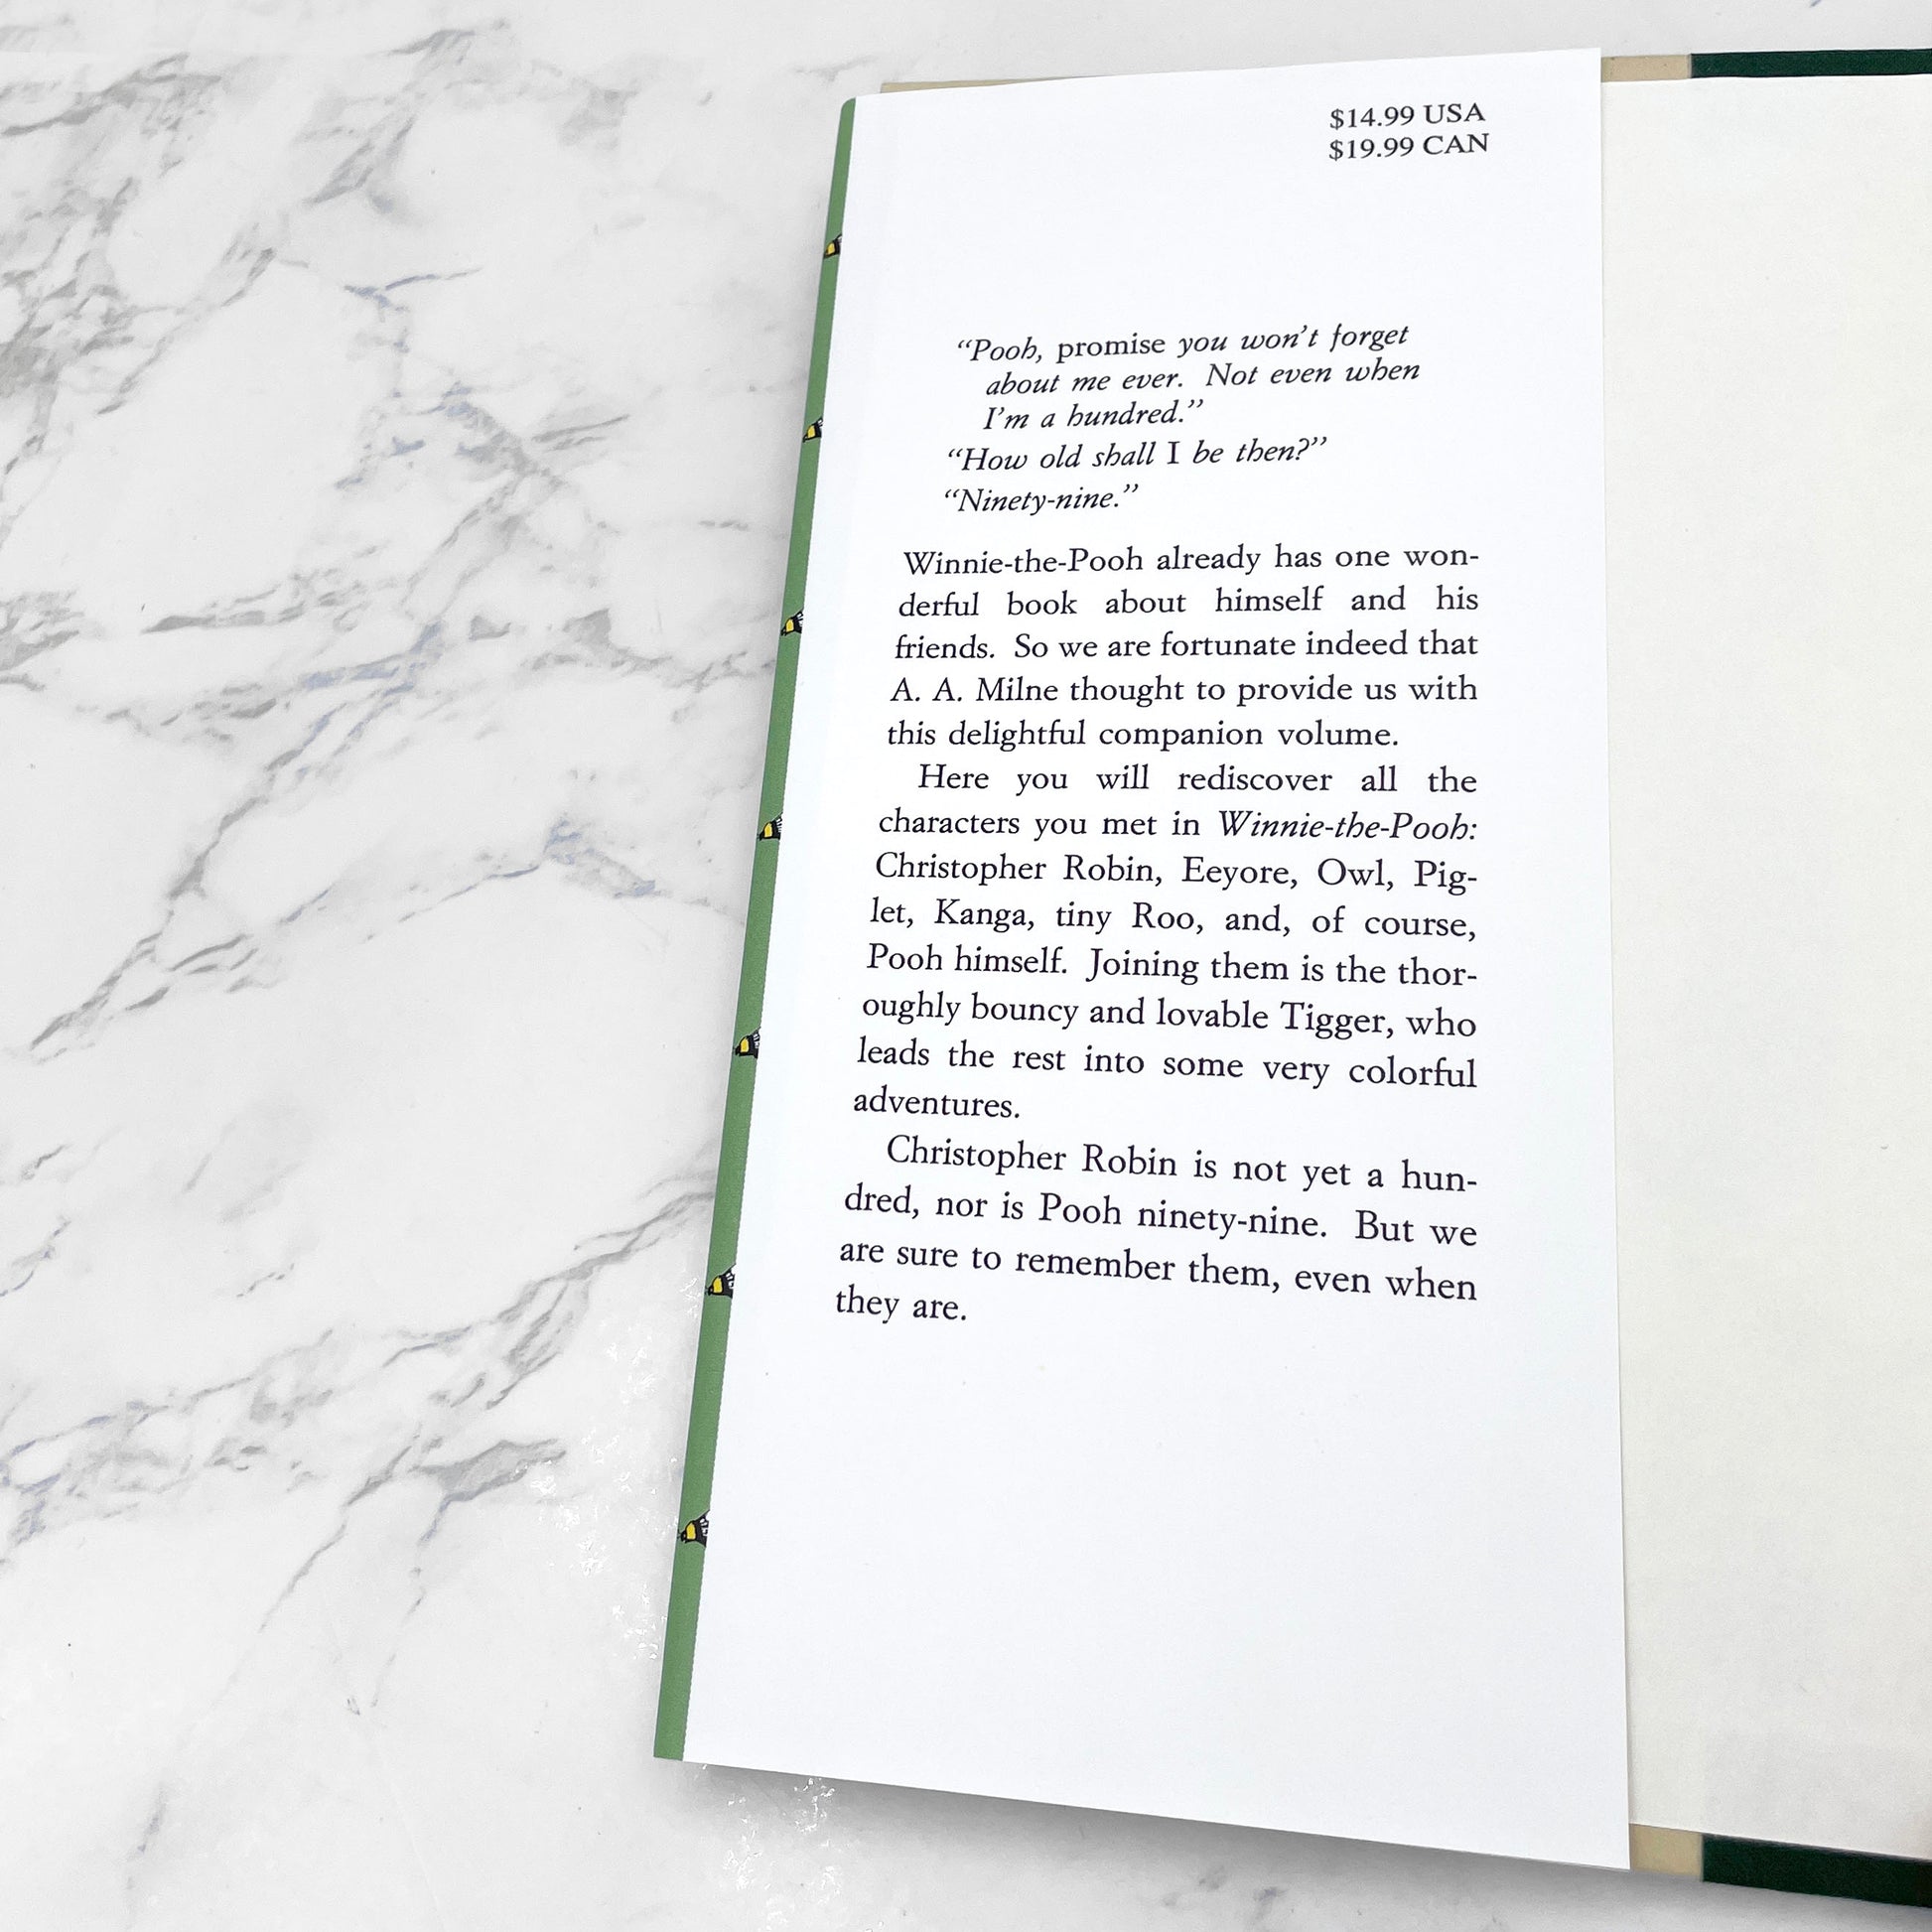 $14.99 USA
$19.99 CAN
“Pooh, promise you won’t forget
about me ever. Not even when
I’m a hundred.”
“How old shall I be then?”
“Ninety-nine.”
Winnie-the-Pooh already has one won-
derful book about himself and his
friends. So we are fortunate indeed that
A. A. Milne thought to provide us with
this delightful companion volume.
Here you will rediscover all the
characters you met in Winnie-the-Pooh:
Christopher Robin, Eeyore, Owl, Pig-
let, Kanga, tiny Roo, and, of course,
Pooh himself. Joining them is the thor-
oughly bouncy and lovable Tigger, who
leads the rest into some very colorful
adventures.
Christopher Robin is not yet a hun-
dred, nor is Pooh ninety-nine. But we
are sure to remember them, even when
they are.